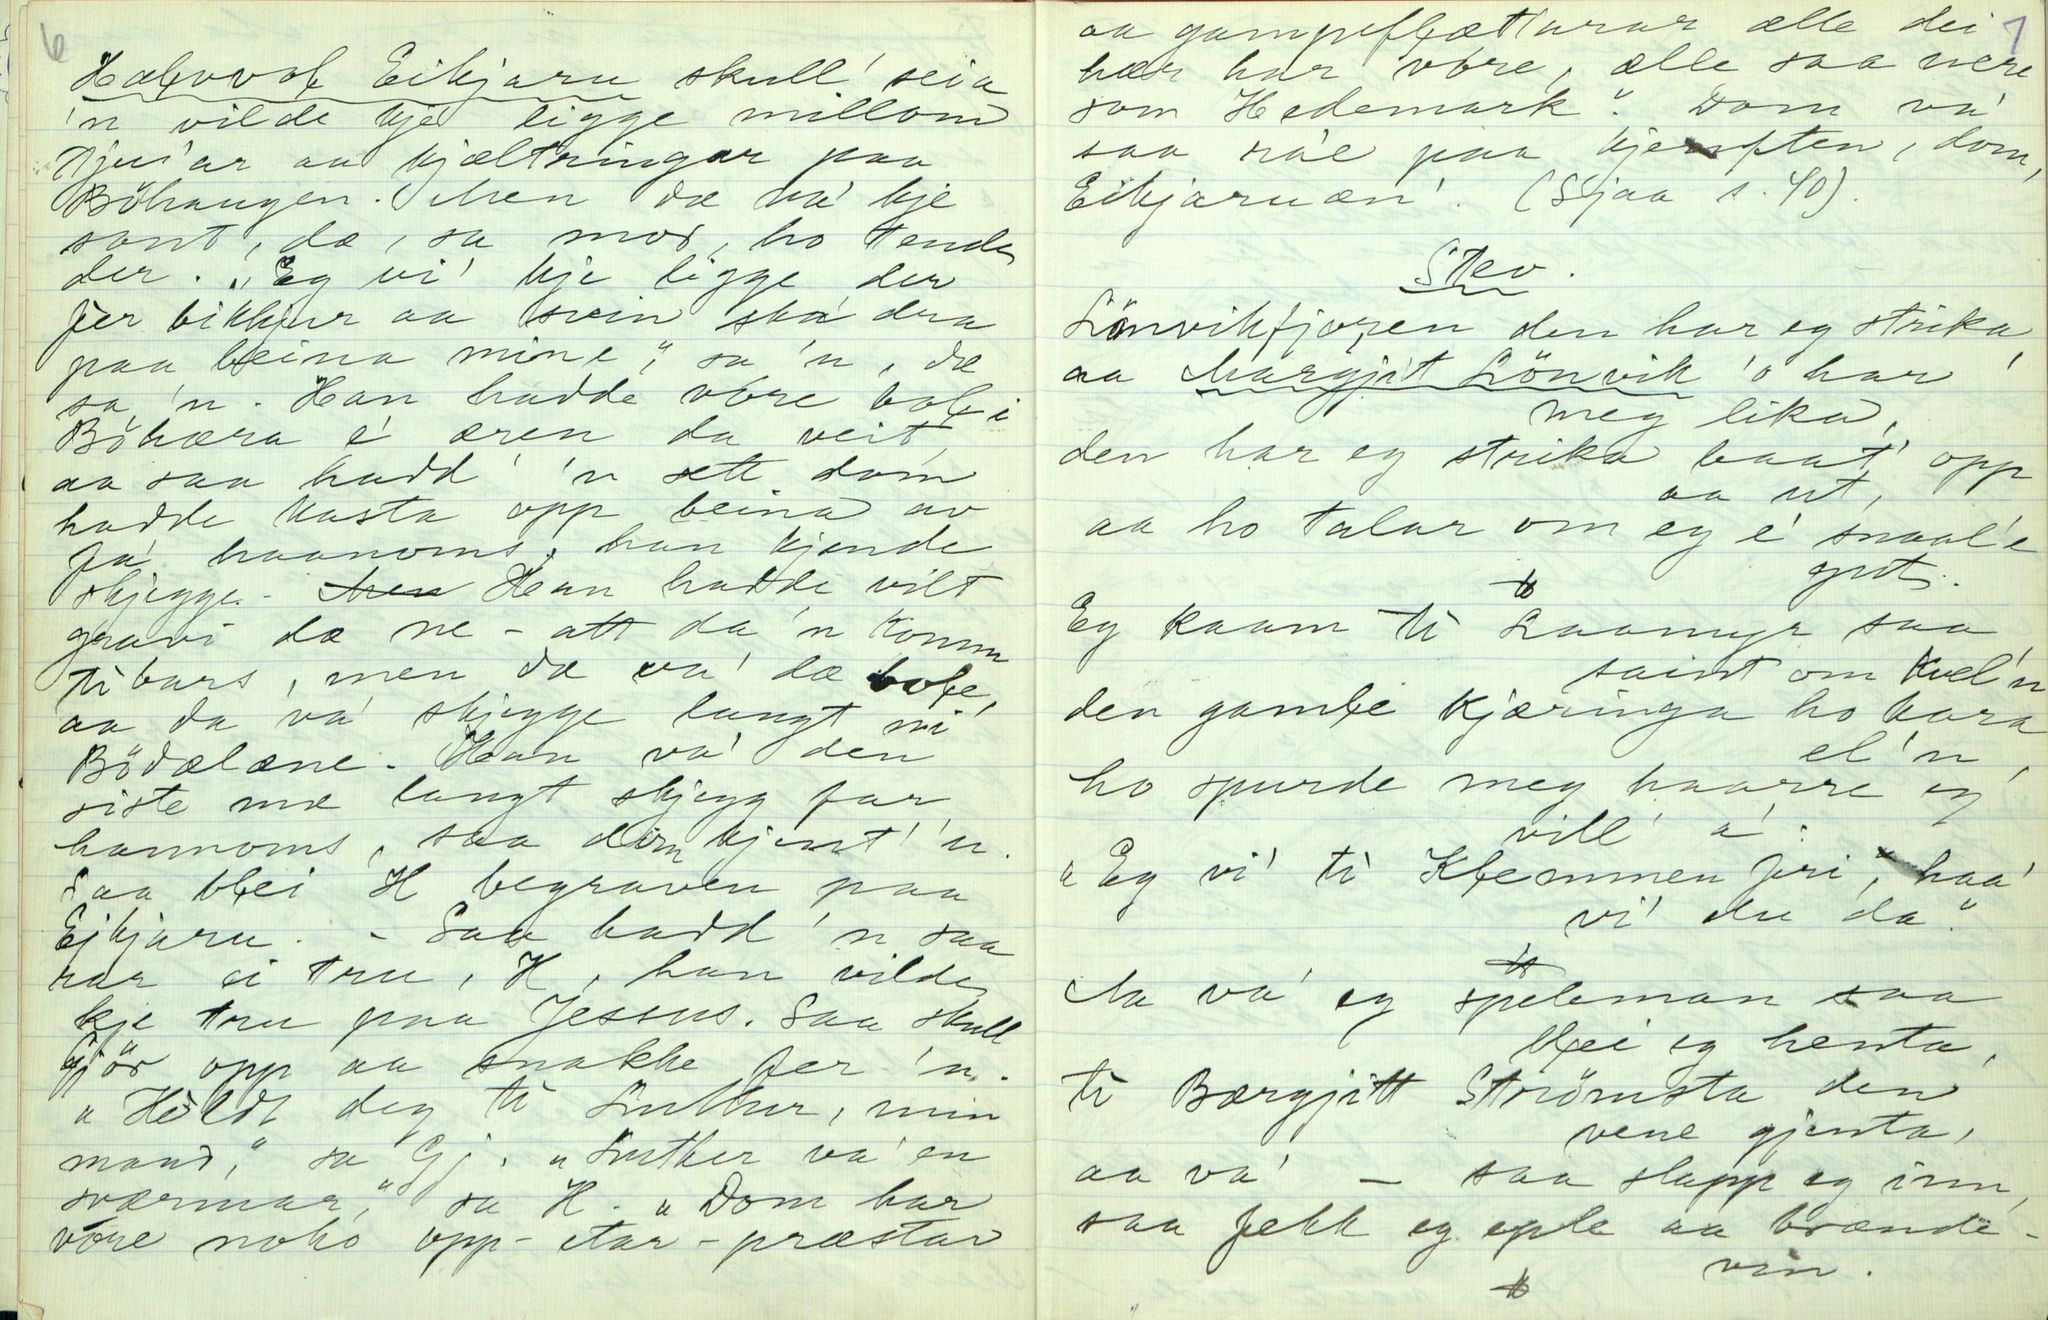 6
Hælvvol Eikjaru skull' seia
'n vilde kje ligge millom
tjuvar aa kjæltringar paa
Böhaugen. Men dæ va' kje
sant, dæ, sa mor, ho tende
der. "Eg vi' kje ligge der
fer bikkjur aa svin ska' dra
paa beina mine", sa 'n, dæ
sa 'n. Han hadde vore bole i
Böhæra é æren da veit,
aa saa hadd' 'n sett dom
hadde kasta opp beina av
fa' haanoms, han kjende
skjegge. - Men Han hadde vilt
gravi dæ ne - att da 'n komm
ti bars, men dæ va' dæ bole,
aa da va' skjegge langt ni
Bödælæne. Han va' den
siste mæ langt skjegg far
hannoms, saa dom kjent' 'n.
Saa blei H begraven paa
Eikjaru. - Saa hadd' 'n saa
rar ei tru, H, han vilde
kje tru paa Jessus. Saa skull
Gjör opp aa snakke fer 'n.
"Hòldt deg ti Luther, min
mand," sa Gj. "Luther va' en
sværmar," sa H. "Dom har
vore noko opp-etar-præstar
7
aa gampeflættarar ælle dei
hær har vore, ælle saa nere
som Hedemark". Dom va'
saa ráe paa kjeften, dom,
Eikjaruæn'. (Sjaa s. 40).
Stev.
Lönvikfjoren den har eg strika
aa Margjit Lönvik 'o har
meg lika,
den har eg strika baat' opp
aa ut,
aa ho talar om eg é snaal'e
gut.
Eg kaam ti Laamyr saa
saint om kvel'n
den gamle kjæringa ho bara
el'n,
ho spurde meg haarre eg
vill' a'.
"Eg vi' ti Klemmen fri", haa'
vi' du da".
Aa va' eg speleman saa
blei eg henta,
ti Bærgjitt Strömsta den
vene gjenta,
aa va' - saa slapp eg inn,
saa fekk eg eple aa brænde-
vin.